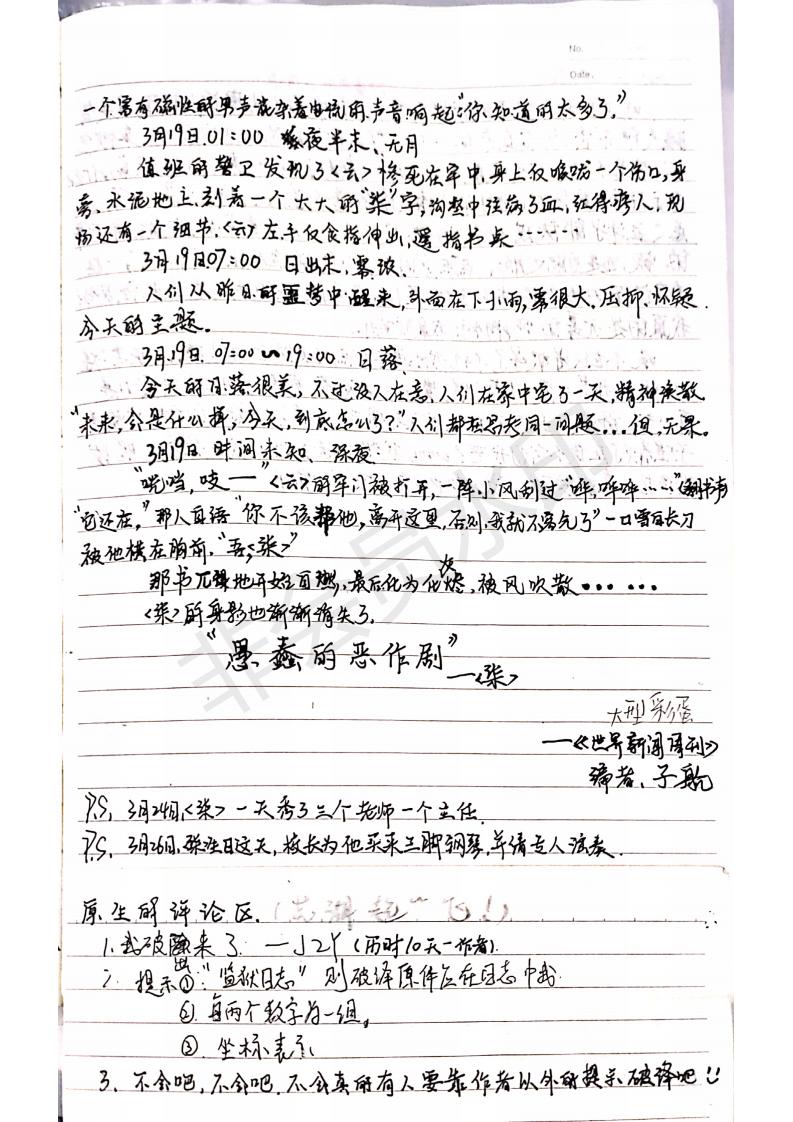 No.
Date.
一个富有磁性的男声混杂着电流的声音响起:“你知道的太多了。”
3月19日.01:00 夜半末、无月
值班的警卫发现了<云>惨死在牢中,身上仅喉咙一个伤口,身
旁、水泥地上,刻着一个大大的“柒”字,沟壑中注满了血,红得瘆人,现
场还有一个细节,<云>左手仅食指伸出,遥指书桌……
3月19日07:00 日出末,雾浓.
人们从昨日的噩梦中醒来,外面在下小雨,雾很大.压抑.怀疑.
今天的主题。
3月19日.07:00~19:00 日落.
今天的日落很美,不过没人在意,人们在家中宅了一天,精神涣散
“未来,会是什么样,今天,到底怎么了?”人们都在思考同一问题...但,无果。
3月19日 时间未知、深夜
“咣当,吱——”<云>的牢门被打开,一阵小风刮过“哗,哗哗……”(翻书声)
“它还在,”那人自语“你不该帮他,离开这里,否则,我就不客气了”一口雪白长刀
被他横在胸前,“吾,<柒>”
那书兀自地开始自燃,最后化为灰烬,被风吹散……
<柒>的身影也渐渐消失了.
“愚蠢的恶作剧”
—<柒>
大型彩蛋
—《世界新闻周刊》
编者、子航
P.S, 3月24日,<柒>一天秀了三个老师一个主任.
P.S, 3月26日,柒生日这天,校长为他买来三脚钢琴,并请专人演奏.
原生的评论区.
1.我破译出来了. —J2Y (历时10天—作者)
2、提示①:“监狱日志” 则破译原件应在日志中找
②.每两个数字为一组。
③.坐标表示
3、不会吧,不会吧.不会真的有人要靠作者以外的提示破译吧!!
非会员水印